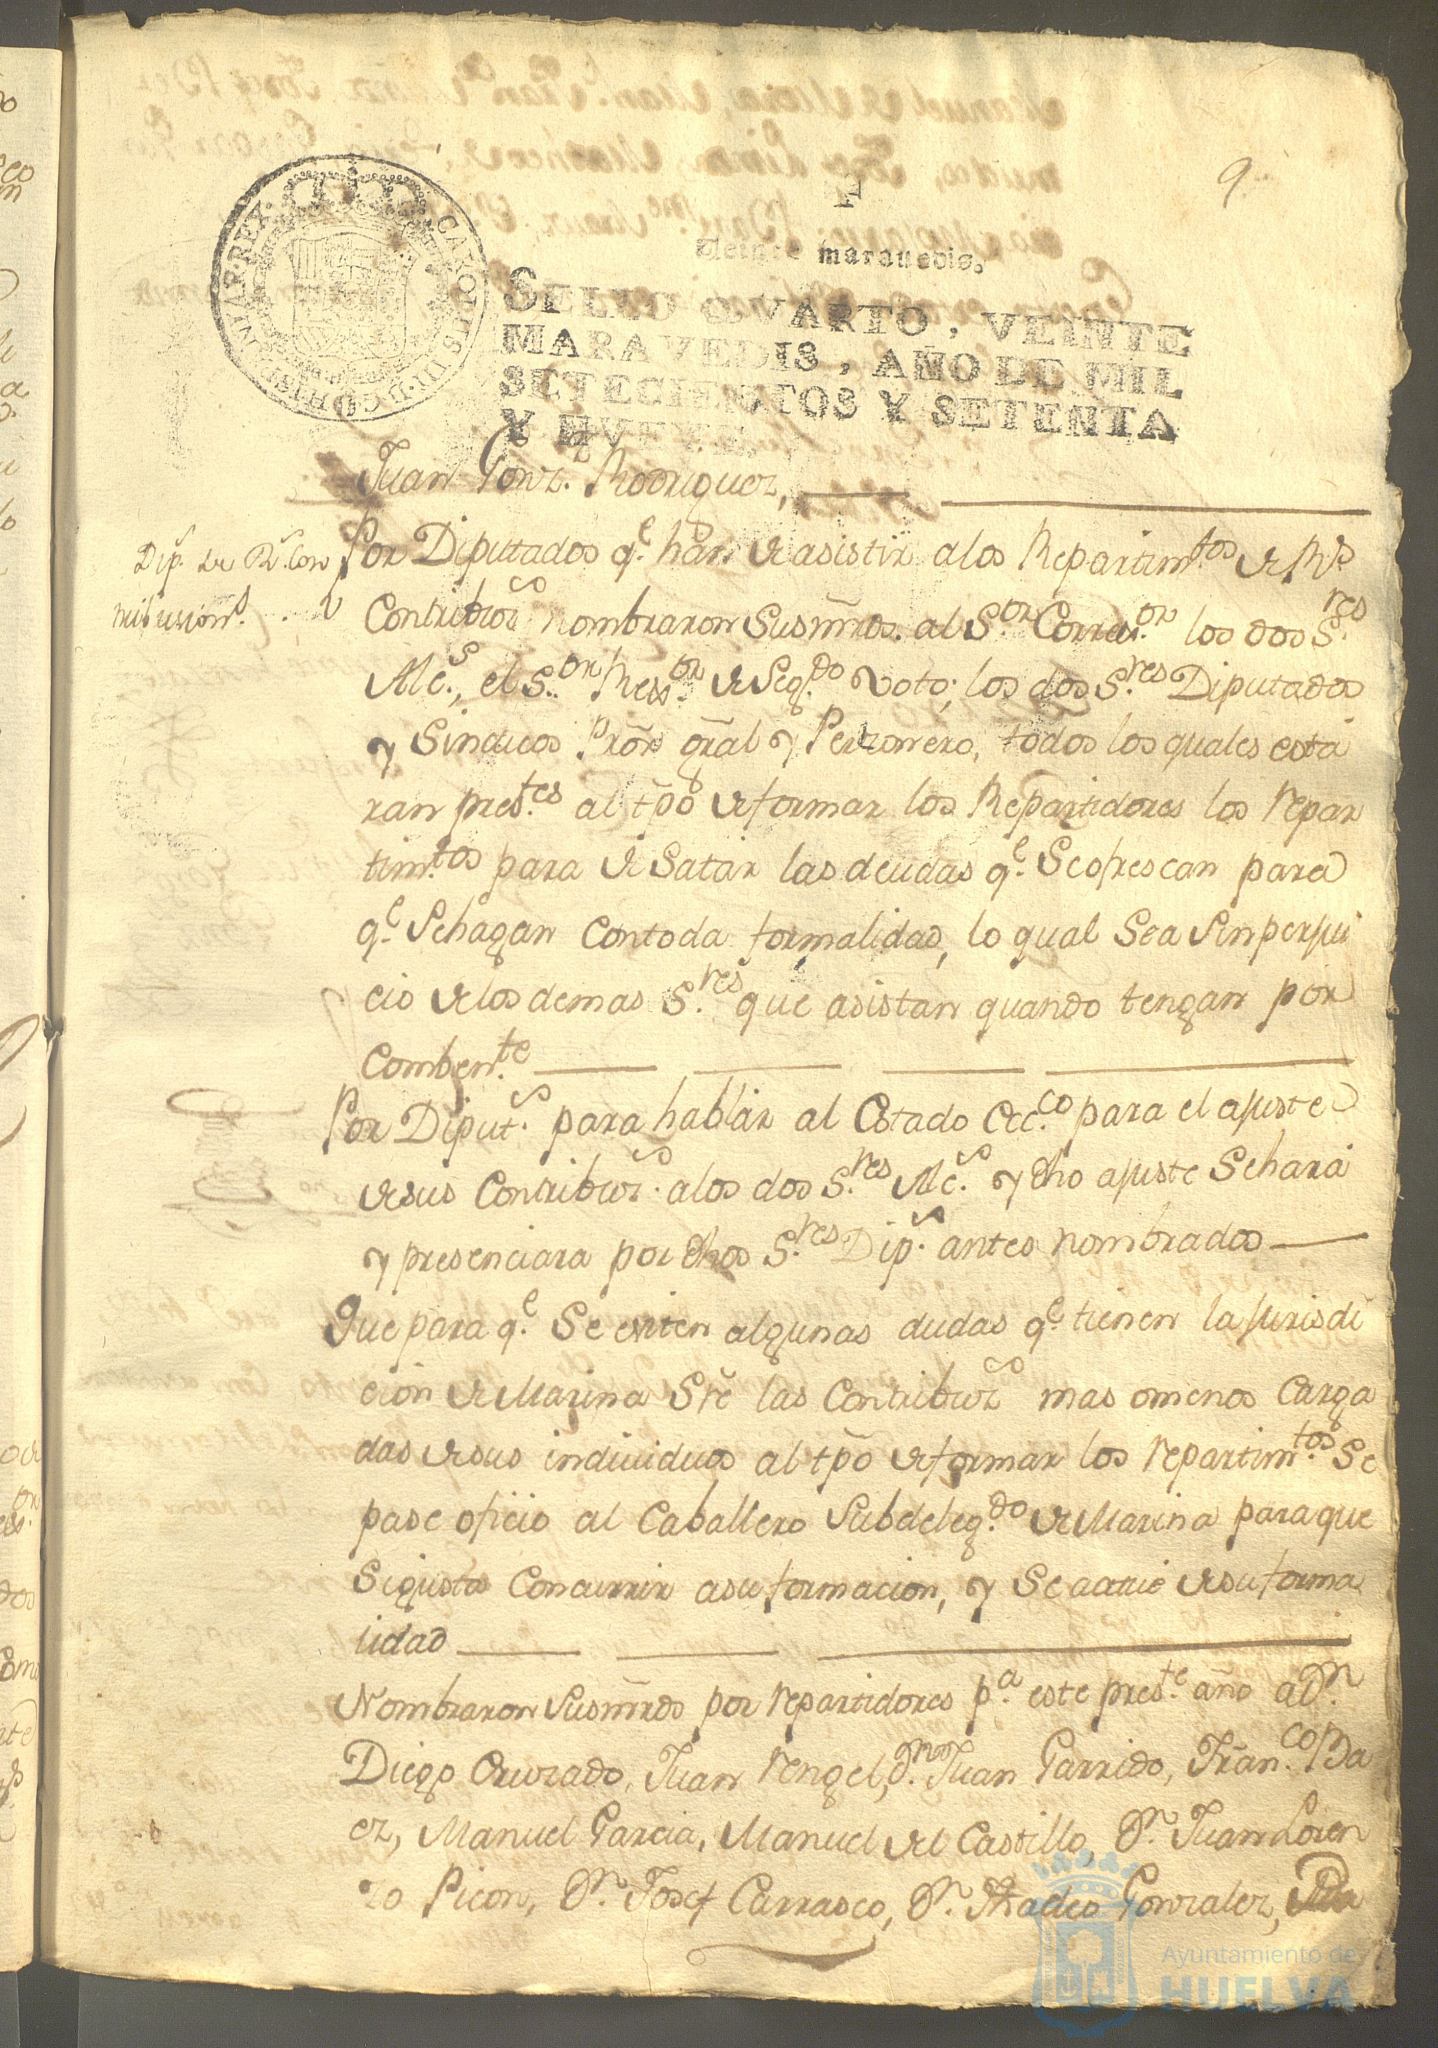 9
Veinte maravedis.
SELLO QVARTO, VEINTE
MARAVEDIS, AÑO DE MIL
SETECIENTOS Y SETENTA
Y NVEVE.
CAROLUS III D G HISPANIAR REX
Juan Gonz. Rodriguez,
Dip.s de R.s Con
tribucion.s
Por Diputados q.e han de asistir a los Repartim.tos de R.s
Contribuz.s nombraron Susmrds. al S.or Correx.or los dos S.res
Alc.s, el S.or Rexi.or de Seg.do voto; los dos S.res Diputados
y Sindicos Prõr grãl y Personero, todos los quales esta
ran pres.tes al tpõ de formar los Repartidores los repar
tim.tos para desatar las deudas q.e se ofrescan para
q.e Se hagan con toda formalidad, lo qual Sea Sin perjui
cio de los demas S.res que asistan quando tengan por
Comben.te
Por Diput.s para hablar al Estado Ecc.co para el ajuste
de sus Contribuz.s a los dos S.res Alc.s y dho ajuste Se hara
y presenciara por dhos S.res Dip.s antes nombrados
Que para q.e Se eviten algunas dudas q.e tienen la jurisdi
cion de Marina Sre las Contribuz.s mas o menos carga
das de sus individuos al tpõ de formar los repartim.tos Se
pase oficio al Caballero Subdeleg.do de Marina para que
Si gusta Concurrir a su formacion, y Se de su forma
lidad
Nombraron Susmrds por repartidores p.a este pres.te año a D.n
Diego Cruzado, Juan Rengel, D.n Juan Garrido, Fran.co Ba
ez, Manuel Garcia, Manuel del Castillo, D.n Juan Loren
zo Picon, D.n Josef Carrasco, D.n Thadeo Gonzalez,
Ayuntamiento de
HUELVA